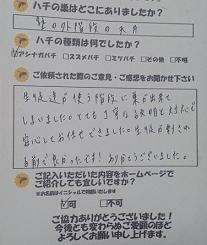 ハチの巣はどこにありましたか？
塾の外階段の天井
ハチの種類は何でしたか？
アシナガバチ □スズメバチ □ミツバチ □その他 □不明
ご依頼された際のご意見・ご感想をお聞かせ下さい
生徒達が使う階段に巣が出来て
しまいました。とても丁寧な説明と対応で
安心してお任せできました。生徒が
助かりました! ありがとうございました。
ご記入いただいた内容をホームページで
ご紹介しても宜しいですか？
可 □不可
ご協力ありがとうございました！
今後とも変わらぬご愛顧のほど
よろしくお願い申し上げます。